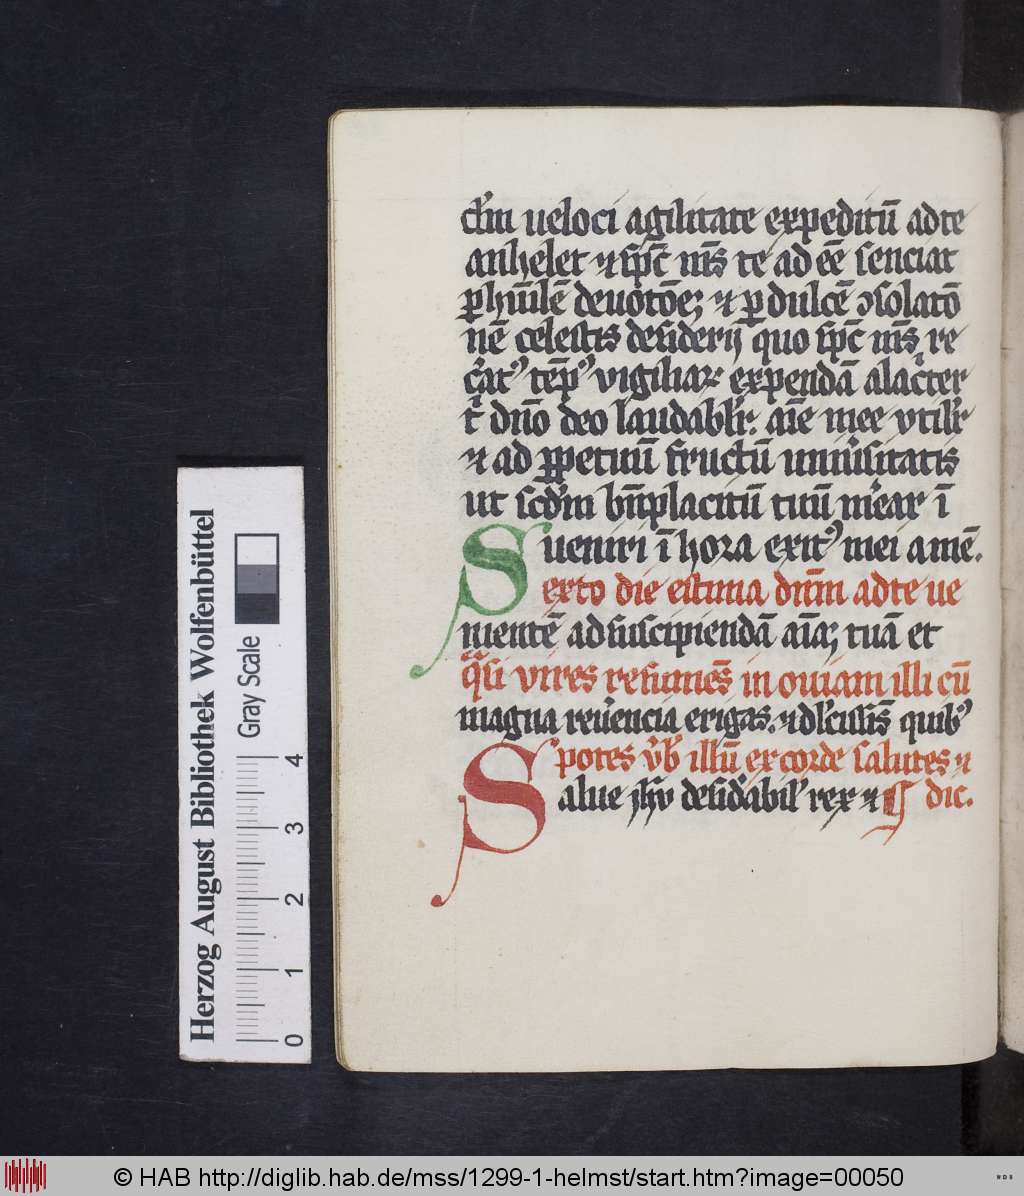 cħm ueloci agilitate expeditū ad te
anhelet ⁊ sp̄c nr̄s te ad eē senciat
ꝑ hūilē deuotōeꝫ ⁊ ꝑ dulcē ꝯsolatō
nē celestis desiderij quo sp̄c nr̄s re
vigiliaꝝ expendā alac̓ter
dn̄o deo laudabl̓r. aīe mee vtil̓r
⁊ ad ꝑpetuū fructū uniu̓sitatis
ut scd̓m bn̄placitū tuū in̄
Sueniri ī hora exitꝰ mei amē.
exto die estima dn̄m ad te ue
nientē ad suscipiendā aīaꝫ tuā et
q̄si vires resumēs in ouiam illi cū
magna reu̓encia erigas. ⁊ quibꝰ
Spotes v̓b̓ illū ex corde salutes ⁊
alue ih̄u desid̓abil̓ rex ⁊ ¶ dic.
Herzog August Bibliothek Wolfenbüttel
Gray Scale
0 1 2 3 4
© HAB http://diglib.hab.de/mss/1299-1-helmst/start.htm?image=00050